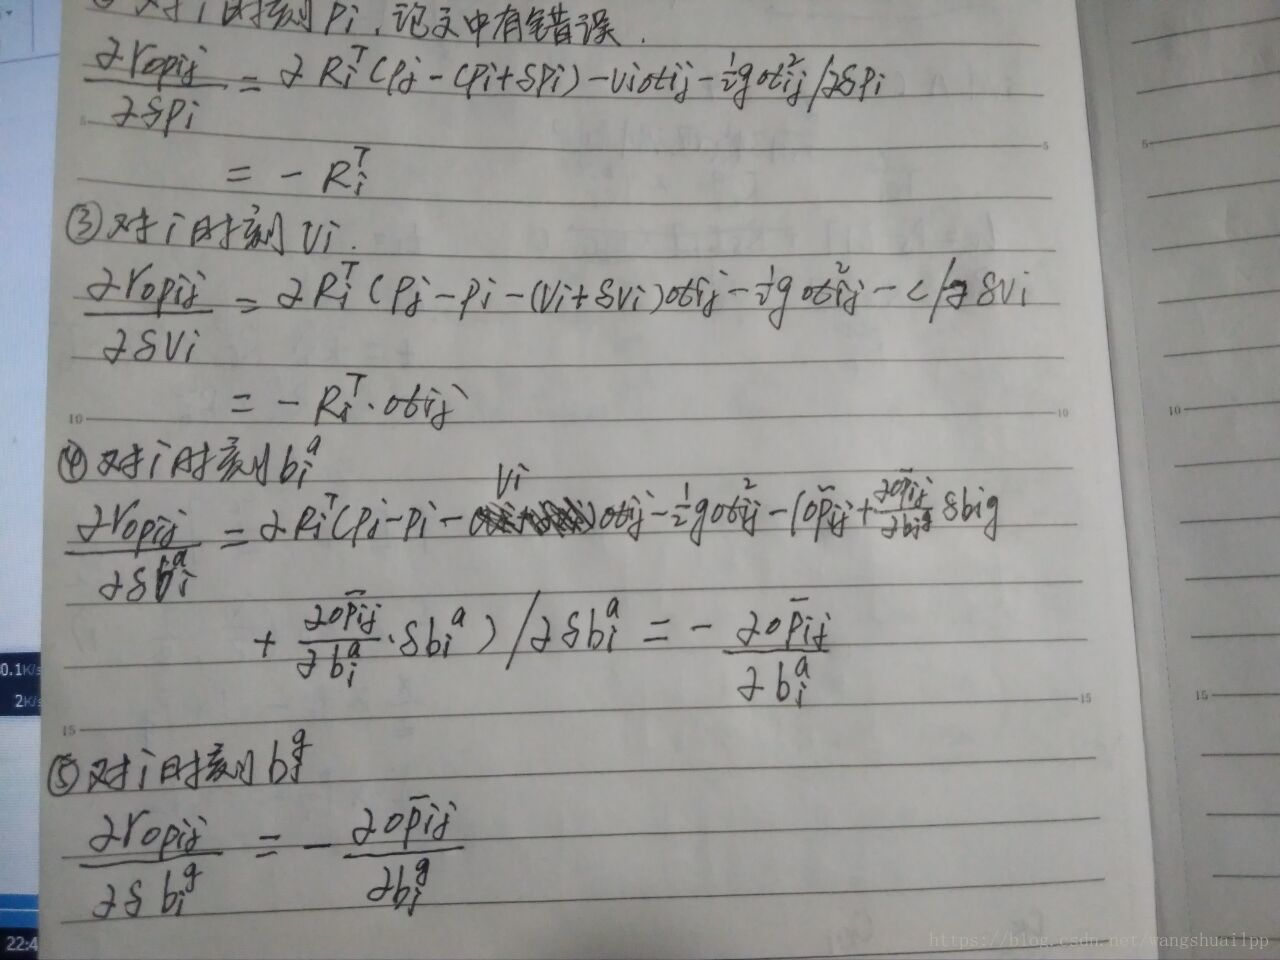 ② 对i时刻Pi,论文中有错误.
∂rΔpij/∂δpi = ∂Ri^T(Pj-(Pi+δPi)-viΔtij-½gΔtij²/∂δPi
5
= -Ri^T
③对i时刻Vi.
∂rΔpij/∂δVi = ∂Ri^T(Pj-Pi-(Vi+δVi)Δtij-½gΔtij²-c/∂δVi
= -Ri^T·Δtij
10
④对i时刻bi^a
Vi
∂rΔpij/∂δbi^a = ∂Ri^T(Pj-Pi-Δtij-½gΔtij²-(Δp̄ij+∂Δp̄ij/∂bi^g δbig
+ ∂Δp̄ij/∂bi^a·δbi^a)/∂δbi^a = -∂Δp̄ij/∂bi^a
15
⑤对i时刻bi^g
∂rΔpij/∂δbi^g = -∂Δp̄ij/∂bi^g
5
10
15
0.1K/s
2K/s
22:4
https://blog.csdn.net/wangshuailpp